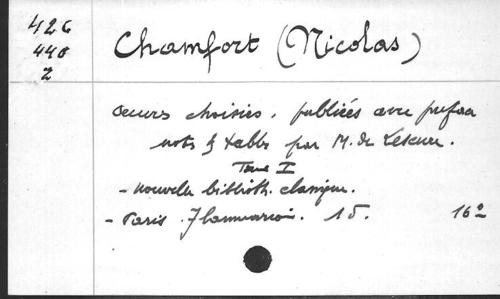 426
440
2
Chamfort (Nicolas)
Œuvres choisies. publiées avec préface
nots & table par M. de Lescure.
Tome I
- nouvelle biblioth. classique.
- Paris. Flammarion. 15. 16°